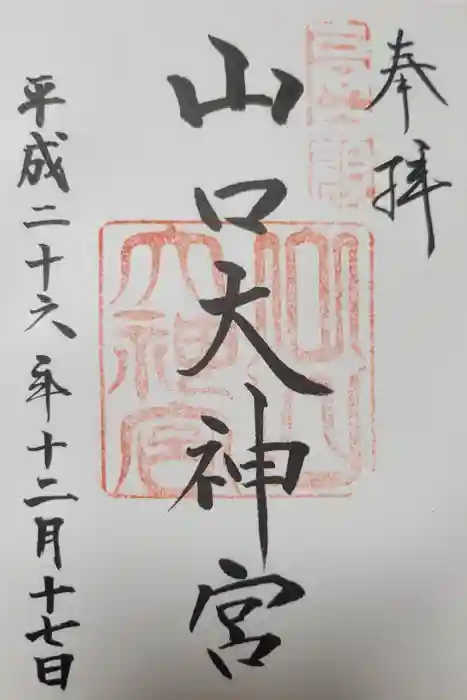 奉拝
山口大神宮
平成二十六年十二月十七日